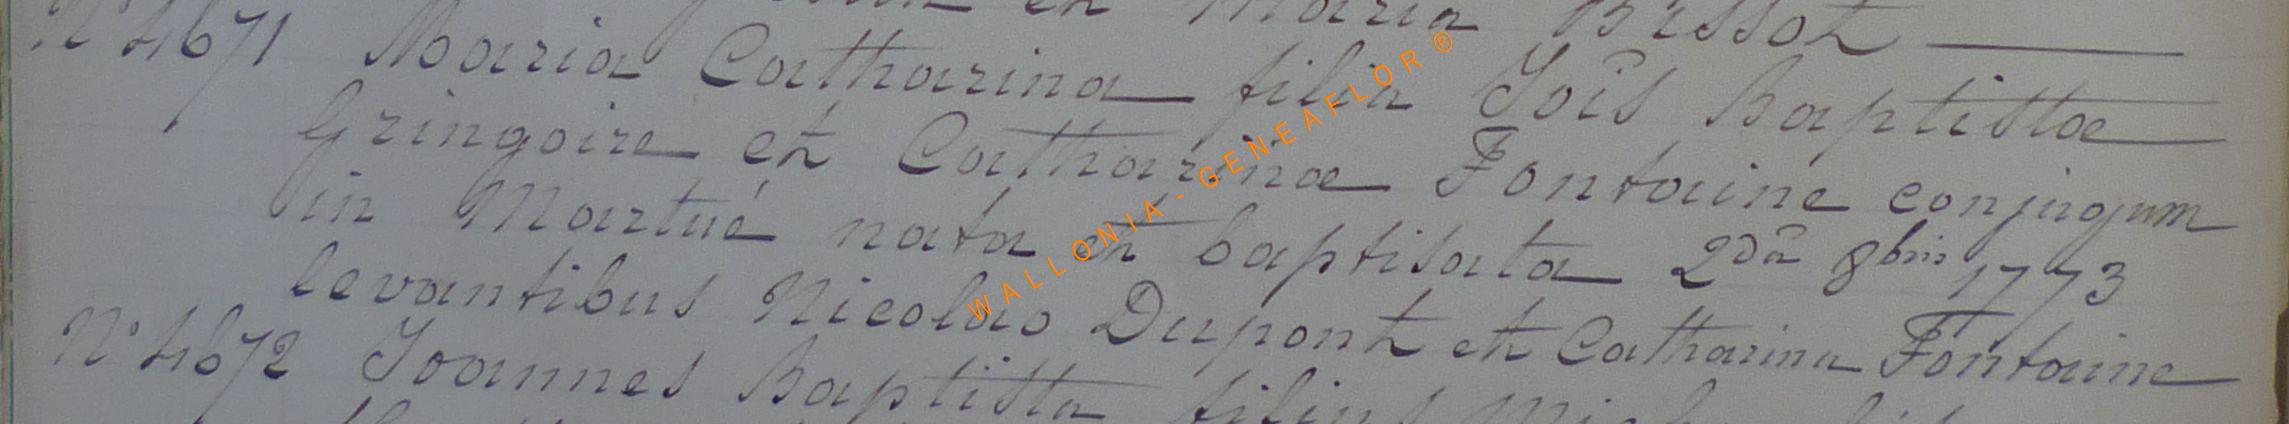 et Maria Bissot
N° 4671 Maria Catharina filia Joīs Baptistæ
Gringoire et Catharinæ Fontaine conjugum
in Martué nata et baptisata 2dā 8bris 1773
levantibus Nicolao Dupont et Catharina Fontaine
N° 4672 Joannes Baptista filius
WALLONIA - GENEAFLOR ®